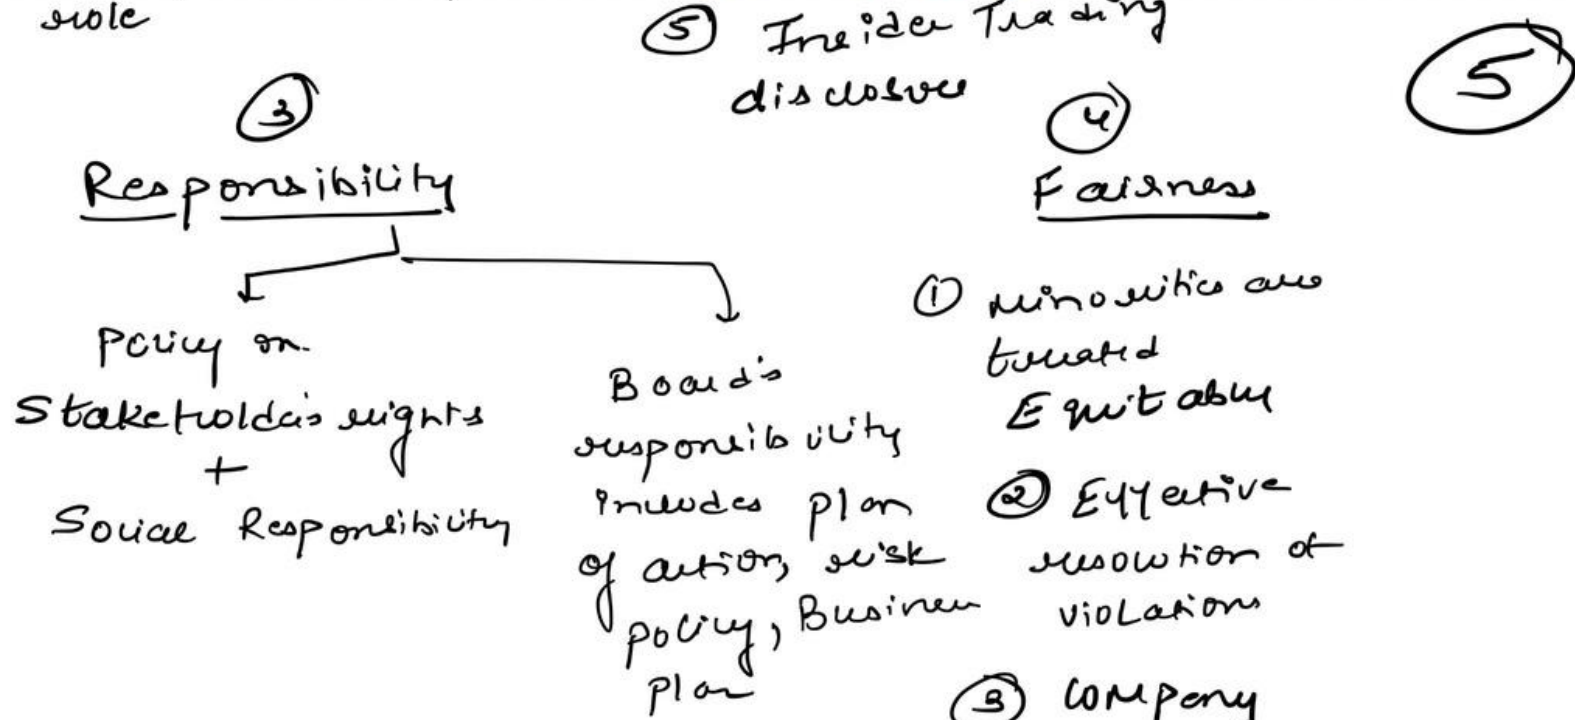 role
⑤ Insider Trading
disclosure
⑤
③
Responsibility
Policy on
Stakeholder's rights
+
Social Responsibility
Board's
responsibility
includes plan
of action, risk
policy, Business
plan
④
Fairness
① Minorities are
treated
Equitably
② Effective
resolution of
violations
③ Company